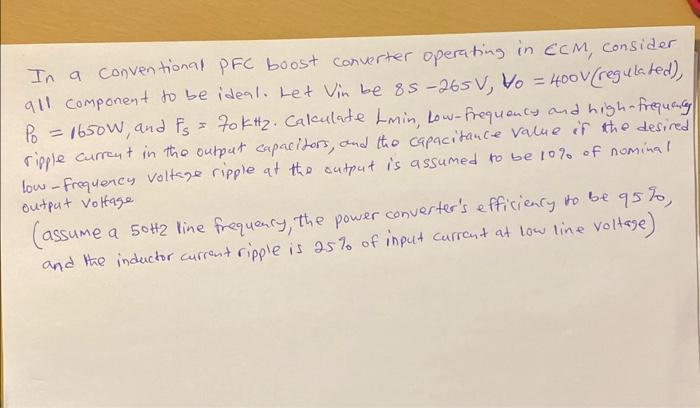 In a conventional PFC boost converter operating in CCM, consider
all component to be ideal. Let Vin be 85-265V, Vo = 400V (regulated),
Po = 1650W, and Fs = 70kHz. Calculate Lmin, Low-frequency and high-frequency
ripple current in the output capacitors, and the capacitance value if the desired
low-frequency voltage ripple at the output is assumed to be 10% of nominal
output voltage
(assume a 50Hz line frequency, the power converter's efficiency to be 95%,
and the inductor current ripple is 25% of input current at low line voltage)